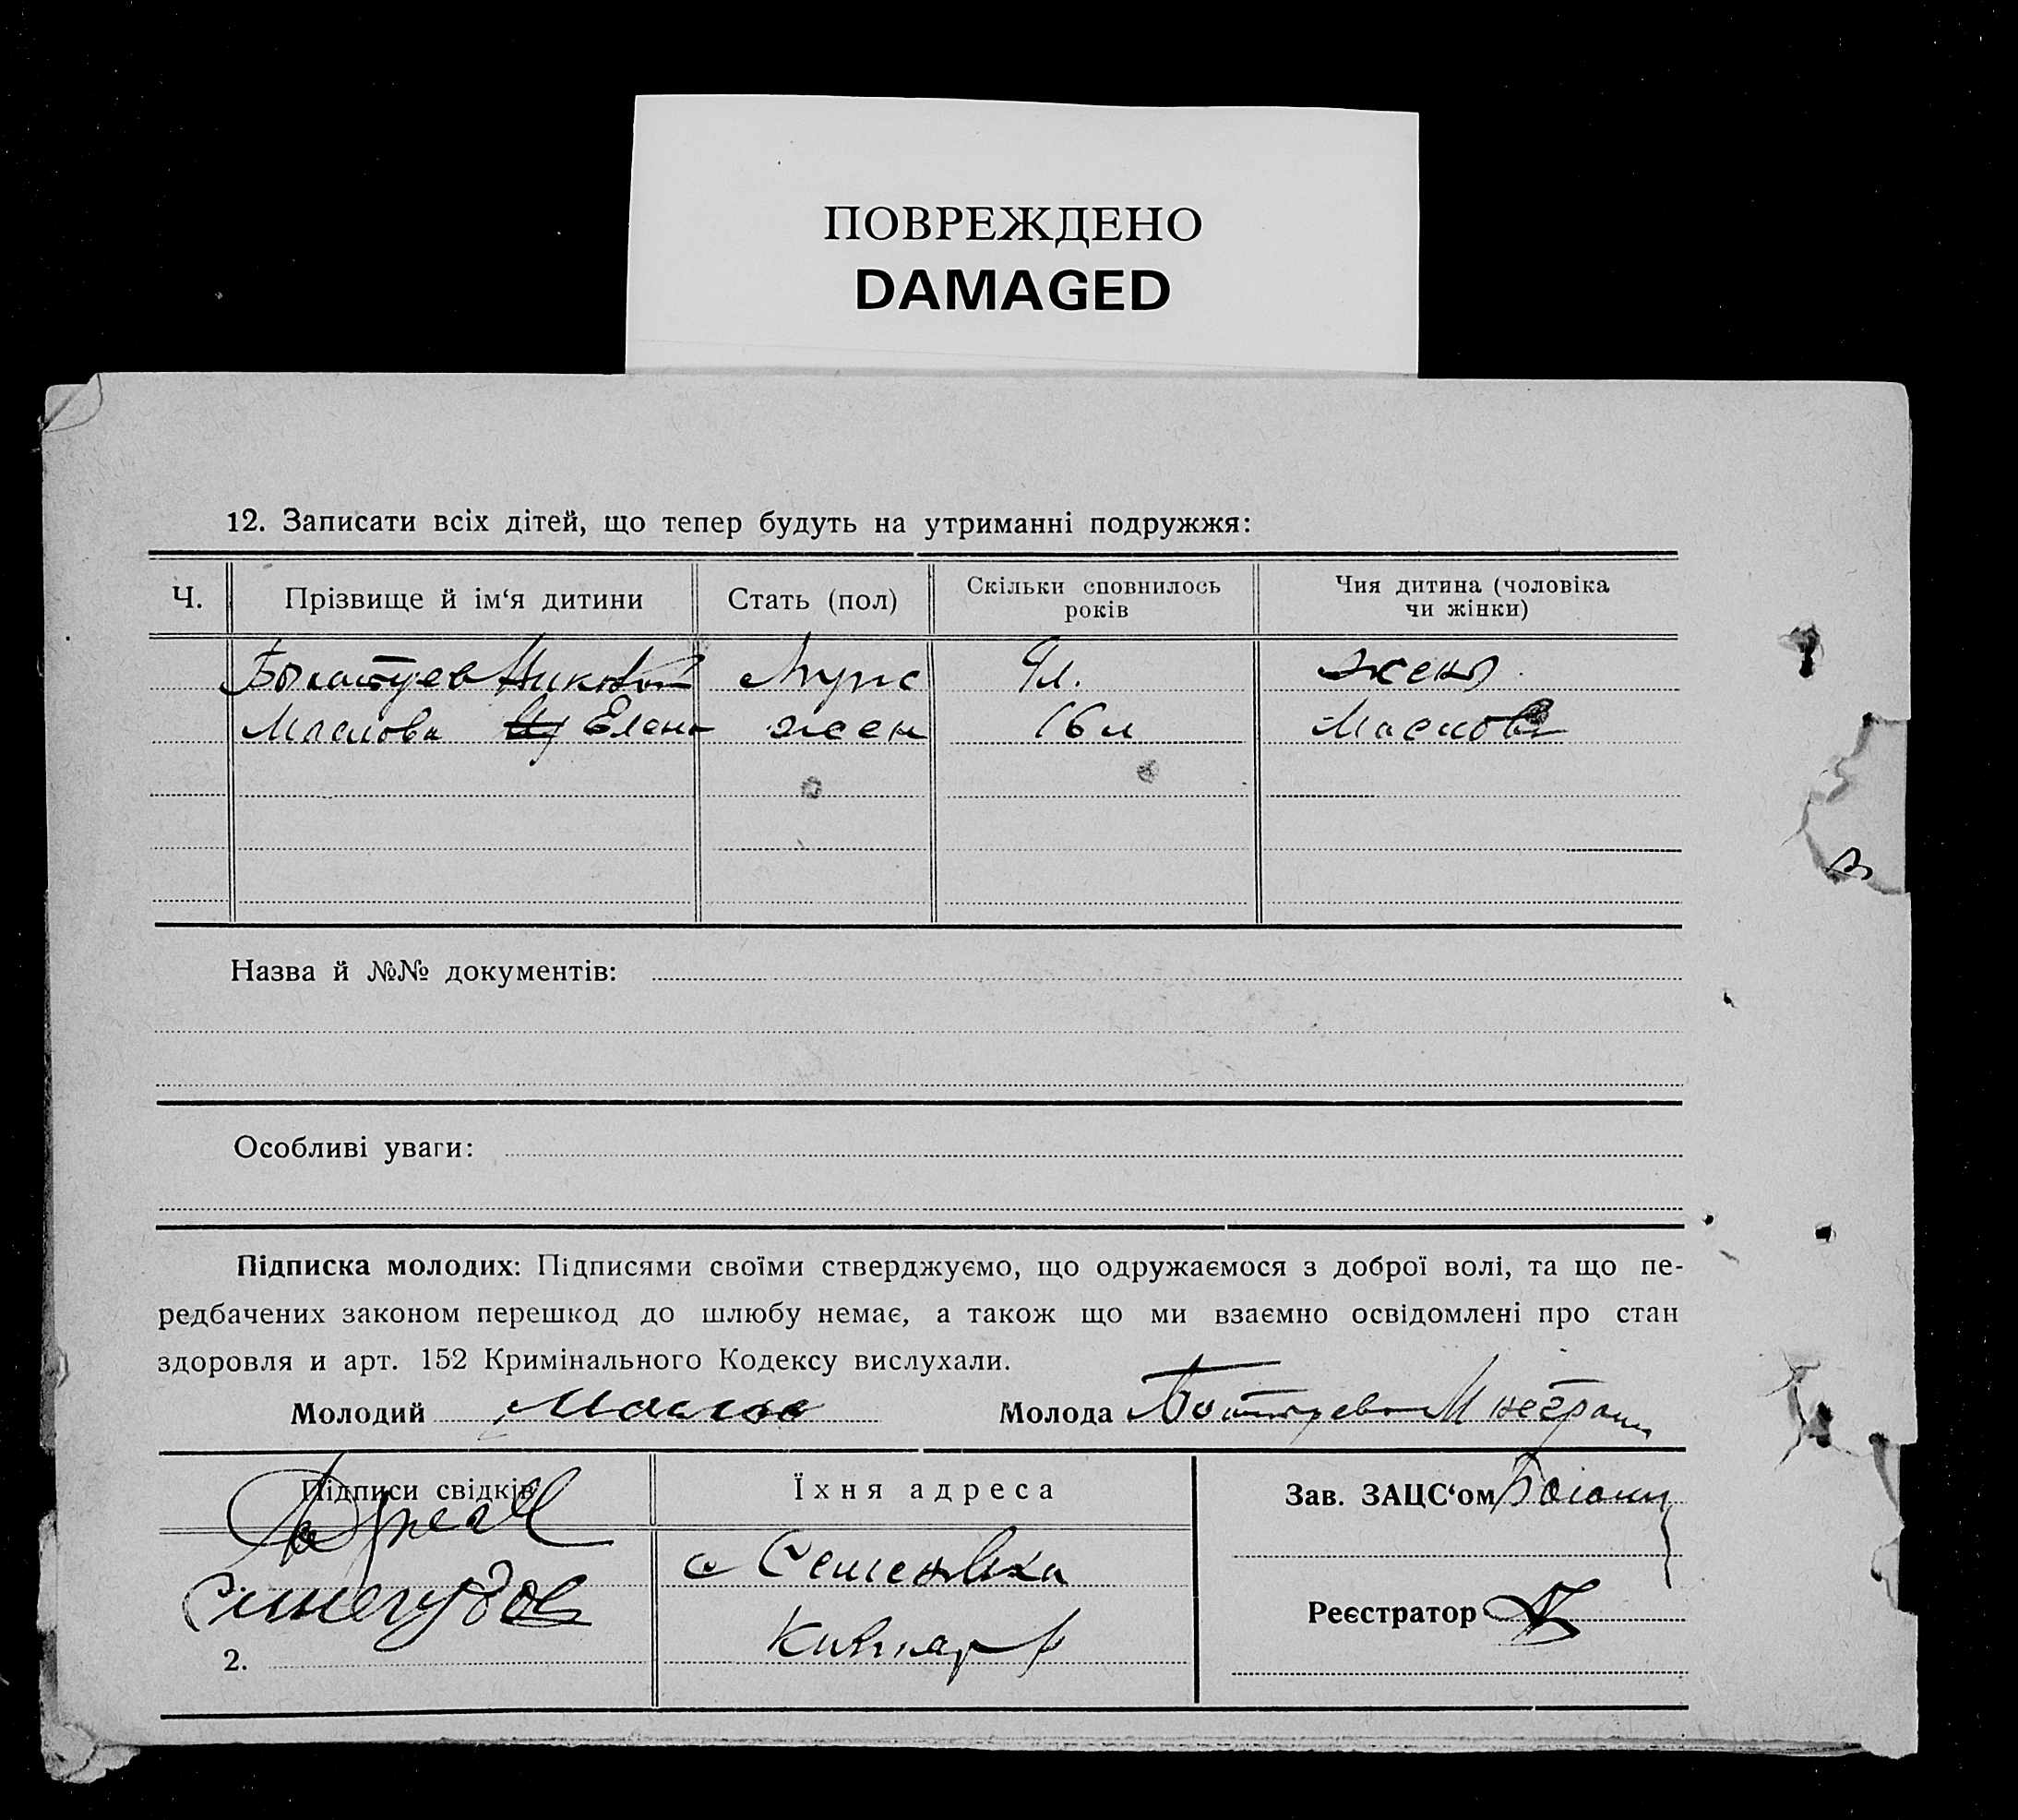 ПОВРЕЖДЕНО
DAMAGED
12. Записати всіх дітей, що тепер будуть на утриманні подружжя:
Ч. Прізвище й ім‘я дитини Стать (пол) Скільки сповнилось років Чия дитина (чоловіка чи жінки)
Муж
Маслова Елена жен 16 л Маслова
Назва й №№ документів:
Особливі уваги:
Підписка молодих: Підписями своїми стверджуємо, що одружаємося з доброї волі, та що пе-
редбачених законом перешкод до шлюбу немає, а також що ми взаємно освідомлені про стан
здоровля и арт. 152 Кримінального Кодексу вислухали.
Молодий Маслов Молода
Підписи свідків Їхня адреса Зав. ЗАЦС‘ом
с Семеновка
Реєстратор
2.